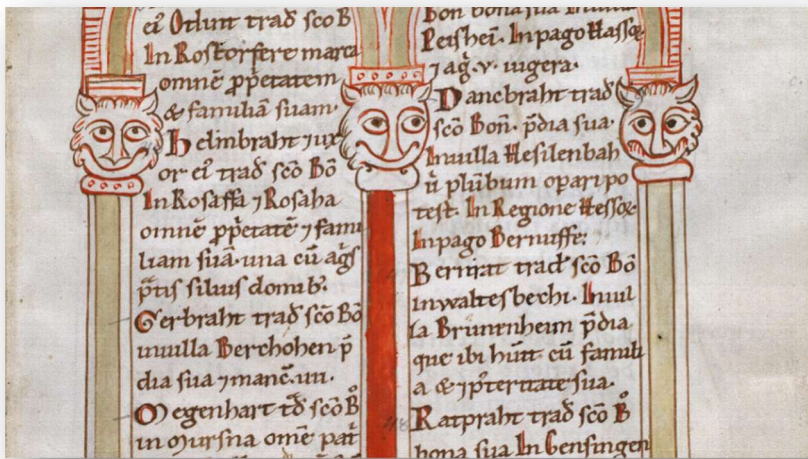 ei᷒ Otlunt trad̄ sc̄o B
In Rostorfere marca
omnē ꝓp̄etatem
& familiā suam·
Helmbraht ⁊ ux
or ei᷒ trad̄ sc̄o Bō
In Rosaffa ⁊ Rosaha
omnē ꝓp̄etatē ⁊ fami
liam suā· una cū ag̃s
p̄tis siluis domib᷒.
Gerbraht trad̄ sc̄o Bō
inuilla Berchohen p̄
dia sua ⁊ manc̄·
Megenhart t̄d sc̄o B̊
in Mursna om̄e pat̄
Bon̄ bona sua Inuilla
Peisheī· In pago Hassoꝝ
⁊ ag̃·v· iugera·
Danebraht trad̄
sc̄o Bon̄· p̄dia sua·
Inuilla Hesilenbah
u᷒ plūbum opari po
test· In Regione Hessoꝝ
Inpago Bernuffe:
Bernrat trad̄ sc̄o Bō
inwaltesbechi· Inuil
la Brunenheim p̄dia
que ibi hūīt cū famili
a & ip̄terutate sua·
Ratpraht trad̄ sc̄o B̊
bona sua In Gensingen